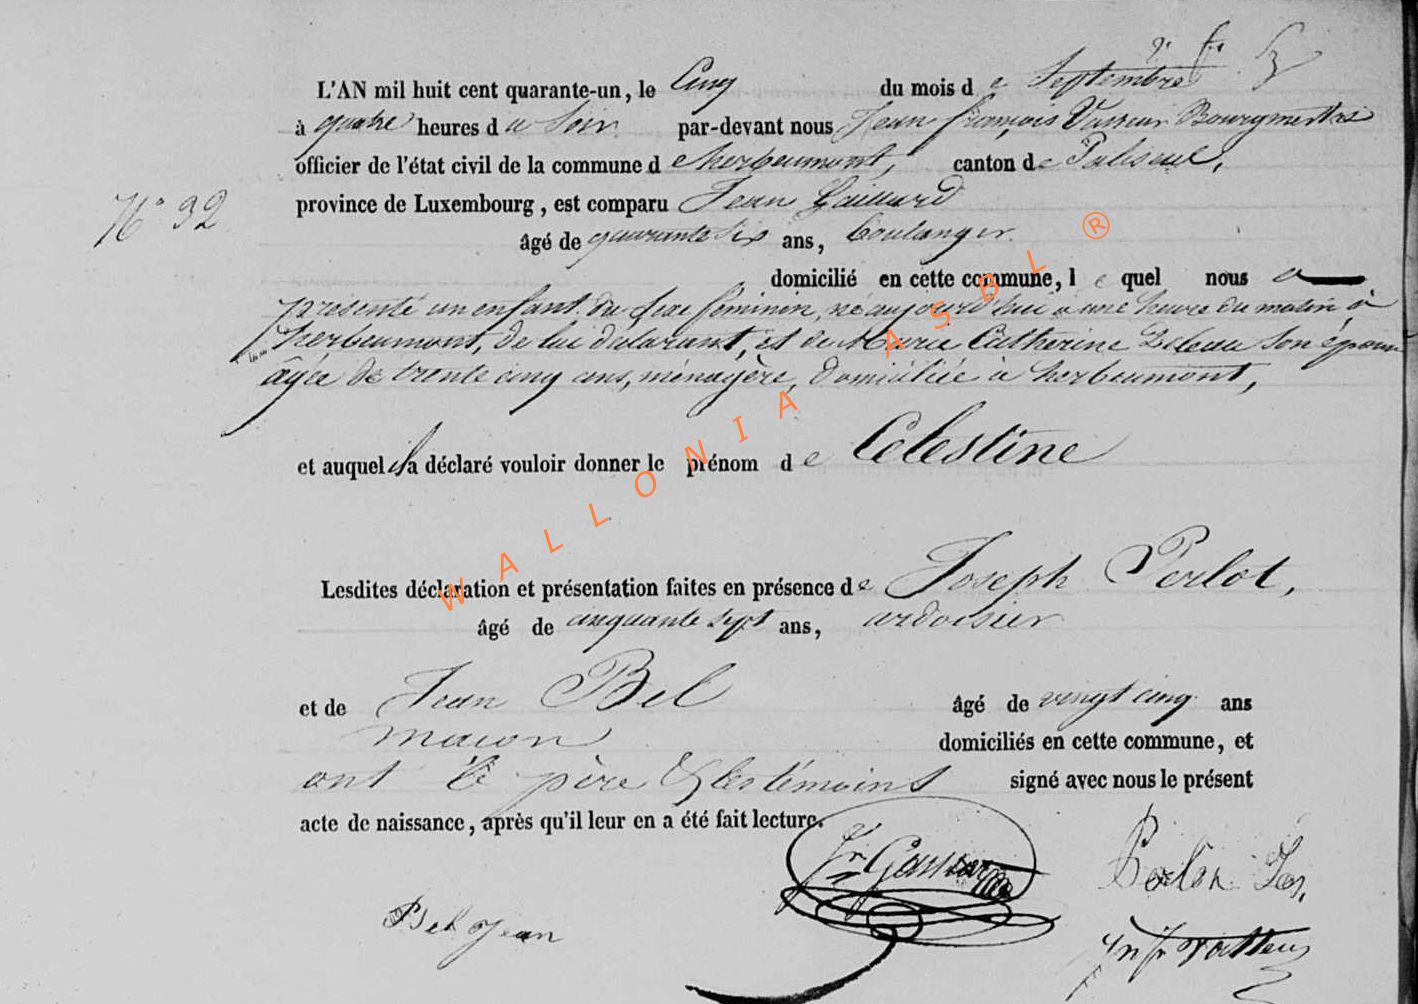 L'AN mil huit cent quarante-un, le Cinq du mois de Septembre
à quatre heures du Soir par-devant nous Jean françois Bourgmestre
officier de l'état civil de la commune d'herbeumont, canton de Paliseul,
province de Luxembourg, est comparu Jean
N° 32
âgé de quarante six ans, boulanger
domicilié en cette commune, lequel nous a
présenté un enfant du sexe féminin, né aujourd'hui à une heure du matin à
herbeumont, de lui déclarant, et de Marie Catherine son épouse
âgée de trente cinq ans, ménagère, domiciliée à herbeumont,
et auquel il a déclaré vouloir donner le prénom de Celestine
Lesdites déclaration et présentation faites en présence de Joseph Perlot,
âgé de cinquante sept ans, ardoisier
et de Jean Bel âgé de vingt cinq ans
macon domiciliés en cette commune, et
ont le père & les témoins signé avec nous le présent
acte de naissance, après qu'il leur en a été fait lecture.
Bel Jean
WALLONIA ASBL ®